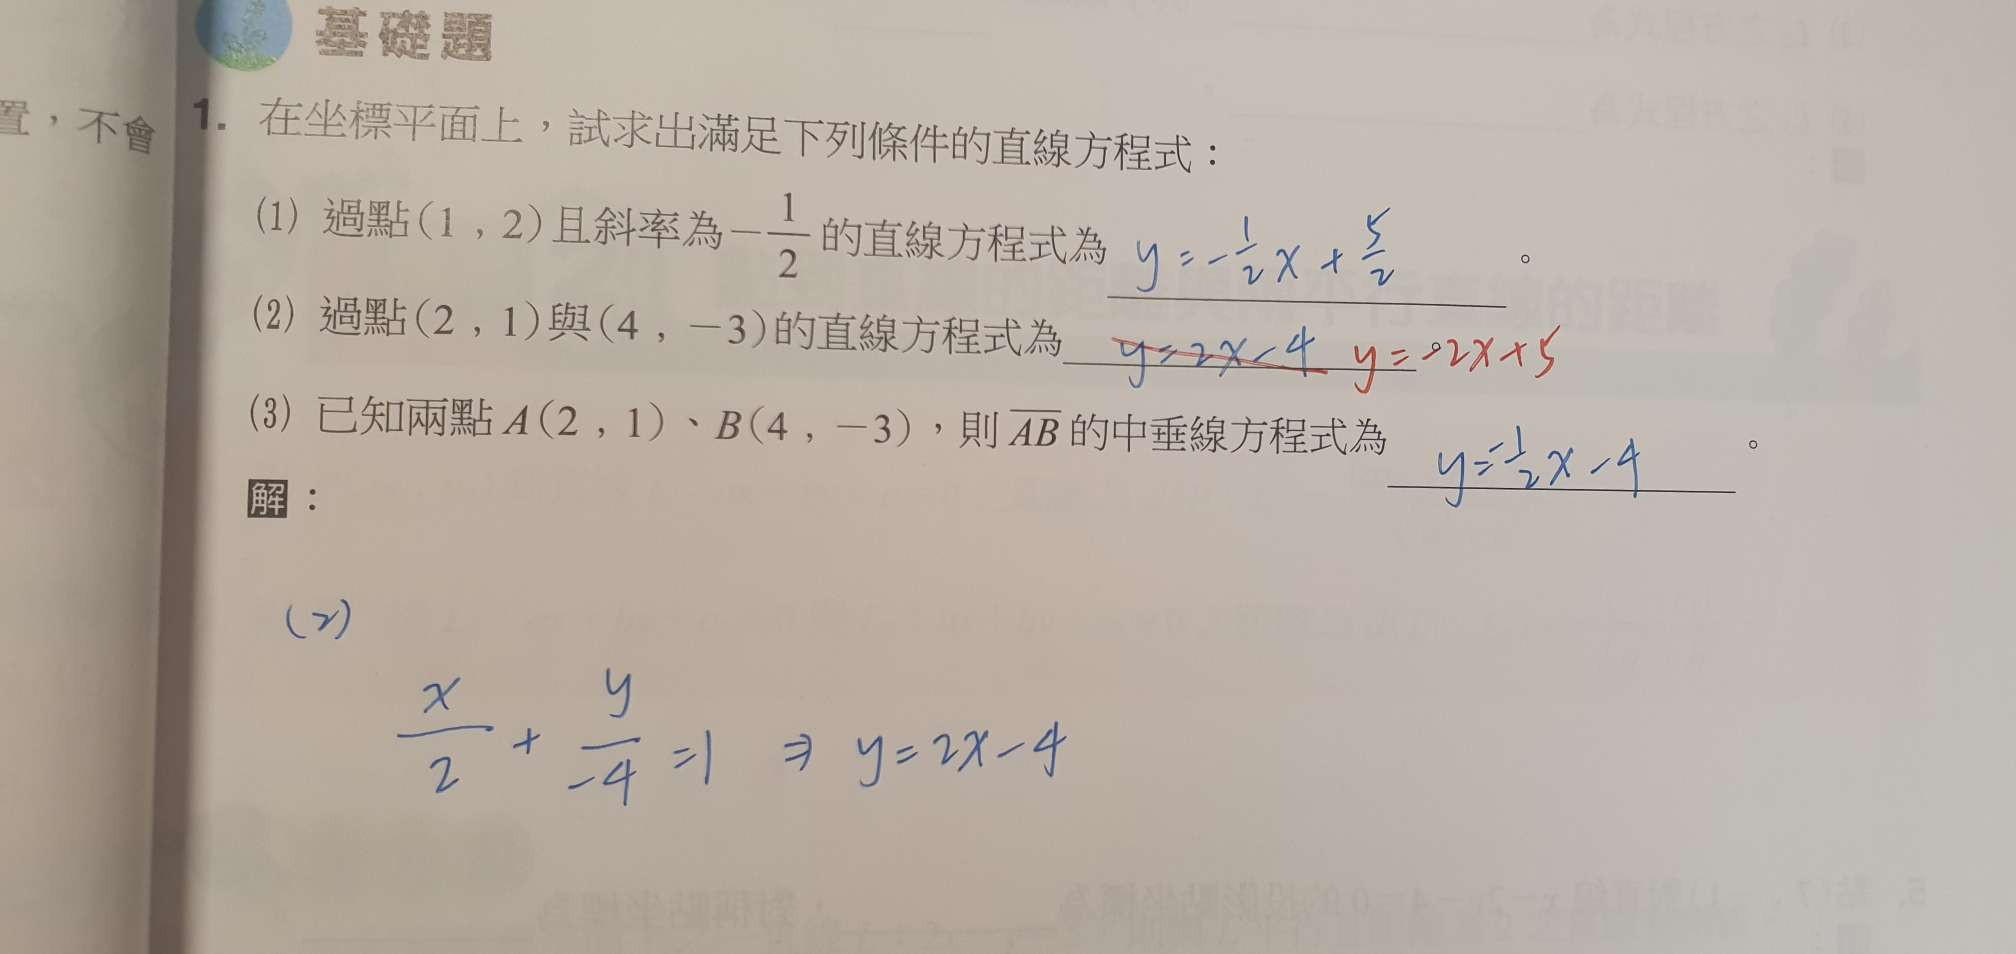 基礎題
置，不會
1. 在坐標平面上，試求出滿足下列條件的直線方程式：
(1) 過點(1 , 2)且斜率為−1/2的直線方程式為 y=-1/2x+5/2 。
(2) 過點(2 , 1)與(4 , −3)的直線方程式為 y=2x-4 y=-2x+5 。
(3) 已知兩點 A(2 , 1)、B(4 , −3)，則 AB 的中垂線方程式為 y=-1/2x-4 。
解：
(2)
x/2 + y/-4 =1 ⇒ y=2x-4